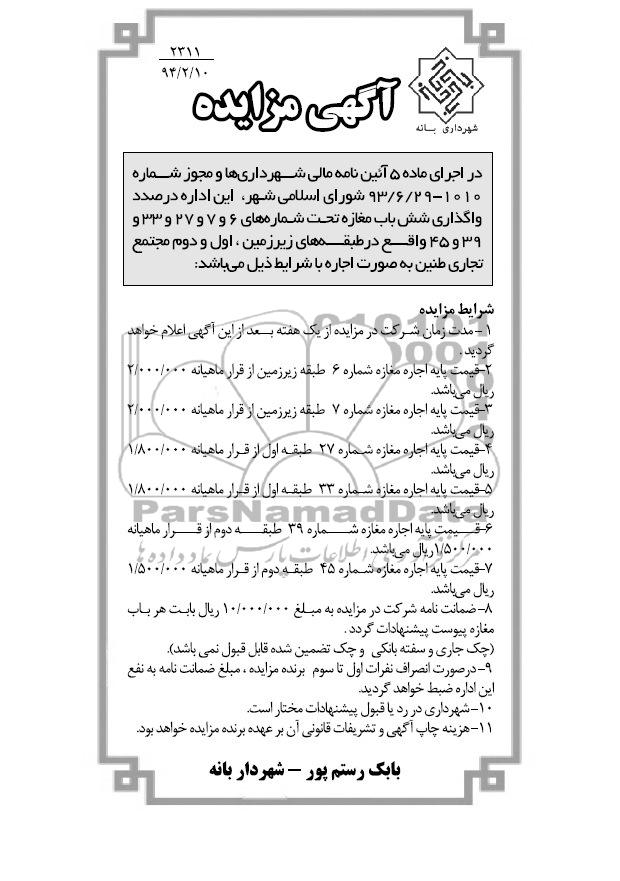 ۲۳۱۱
۹۴/۲/۱۰
آگهی مزایده
شهرداری بانه
در اجرای ماده ۵ آئین نامه مالی شهرداری‌ها و مجوز شماره
۱۰۱۰-۹۳/۶/۲۹ شورای اسلامی شهر، این اداره درصدد
واگذاری شش باب مغازه تحت شماره‌های ۶ و ۷ و ۲۷ و ۳۳ و
۳۹ و ۴۵ واقع درطبقه‌های زیرزمین ، اول و دوم مجتمع
تجاری طنین به صورت اجاره با شرایط ذیل می‌باشد:
شرایط مزایده
۱- مدت زمان شرکت در مزایده از یک هفته بعد از این آگهی اعلام خواهد
گردید .
۲-قیمت پایه اجاره مغازه شماره ۶ طبقه زیرزمین از قرار ماهیانه ۲/۰۰۰/۰۰۰
ریال می‌باشد.
۳-قیمت پایه اجاره مغازه شماره ۷ طبقه زیرزمین از قرار ماهیانه ۲/۰۰۰/۰۰۰
ریال می‌باشد.
۴-قیمت پایه اجاره مغازه شماره ۲۷ طبقه اول از قرار ماهیانه ۱/۸۰۰/۰۰۰
ریال می‌باشد.
۵-قیمت پایه اجاره مغازه شماره ۳۳ طبقه اول از قرار ماهیانه ۱/۸۰۰/۰۰۰
ریال می‌باشد.
ParsNamadData
۶-قیمت پایه اجاره مغازه شماره ۳۹ طبقه دوم از قرار ماهیانه
۱/۵۰۰/۰۰۰ریال می‌باشد.
۷-قیمت پایه اجاره مغازه شماره ۴۵ طبقه دوم از قرار ماهیانه ۱/۵۰۰/۰۰۰
ریال می‌باشد.
۸-ضمانت نامه شرکت در مزایده به مبلغ ۱۰/۰۰۰/۰۰۰ ریال بابت هر باب
مغازه پیوست پیشنهادات گردد .
(چک جاری و سفته بانکی و چک تضمین شده قابل قبول نمی باشد).
۹-درصورت انصراف نفرات اول تا سوم برنده مزایده ، مبلغ ضمانت نامه به نفع
این اداره ضبط خواهد گردید.
۱۰-شهرداری در رد یا قبول پیشنهادات مختار است.
۱۱-هزینه چاپ آگهی و تشریفات قانونی آن بر عهده برنده مزایده خواهد بود.
بابک رستم پور – شهردار بانه